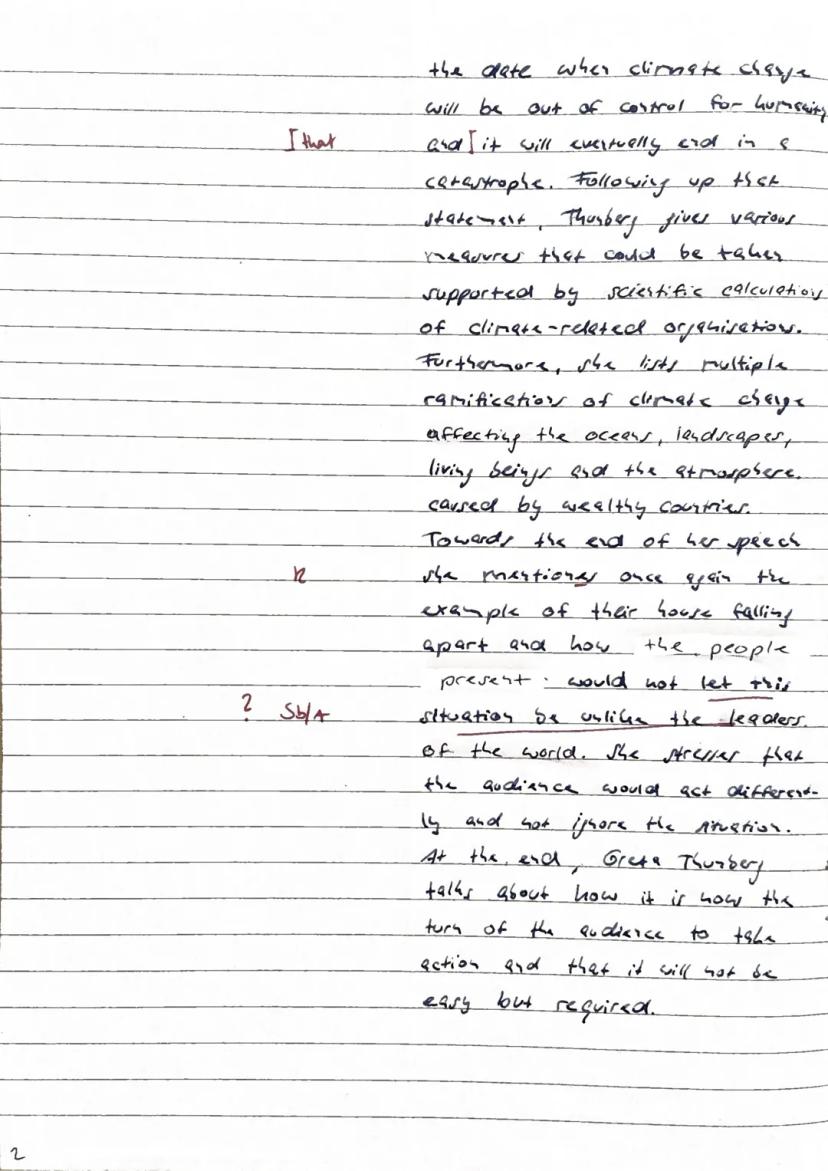 the date when climate change
will be out of control for humanity
[that and [ it will eventually end in a
catastrophe. Following up that
statement, Thunberg gives various
measures that could be taken
supported by scientific calculations
of climate-related organisations.
Furthermore, she lists multiple
ramifications of climate change
affecting the oceans, landscapes,
living beings and the atmosphere.
caused by wealthy countries.
Towards the end of her speech
R she mentiones once again the
example of their house falling
apart and how the people
present would not let this
? Sb/A situation be unlike the leaders.
of the world. She stresses that
the audience would act different-
ly and not ignore the situation.
At the end, Greta Thunberg
talks about how it is now the
turn of the audience to take
action and that it will not be
easy but required.
2